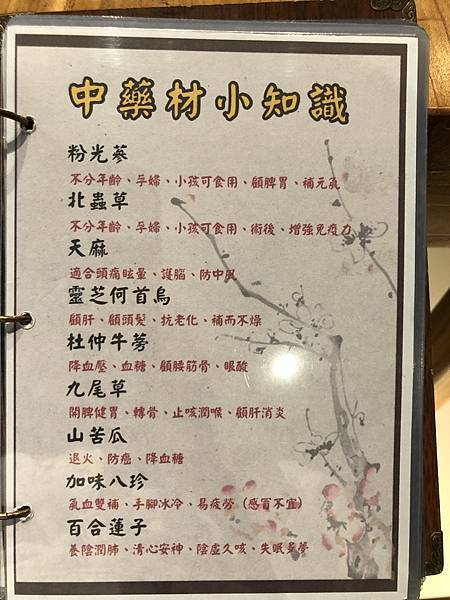 中藥材小知識
粉光蔘
不分年齡、孕婦、小孩可食用、顧脾胃、補元氣
北蟲草
不分年齡、孕婦、小孩可食用、術後、增強免疫力
天麻
適合頭痛眩暈、護腦、防中風
靈芝何首烏
顧肝、顧頭髮、抗老化、補而不燥
杜仲牛蒡
降血壓、血糖、顧腰筋骨、眼酸
九尾草
開脾健胃、轉骨、止咳潤喉、顧肝消炎
山苦瓜
退火、防癌、降血糖
加味八珍
氣血雙補、手腳冰冷、易疲勞（感冒不宜）
百合蓮子
養陰潤肺、清心安神、陰虛久咳、失眠多夢